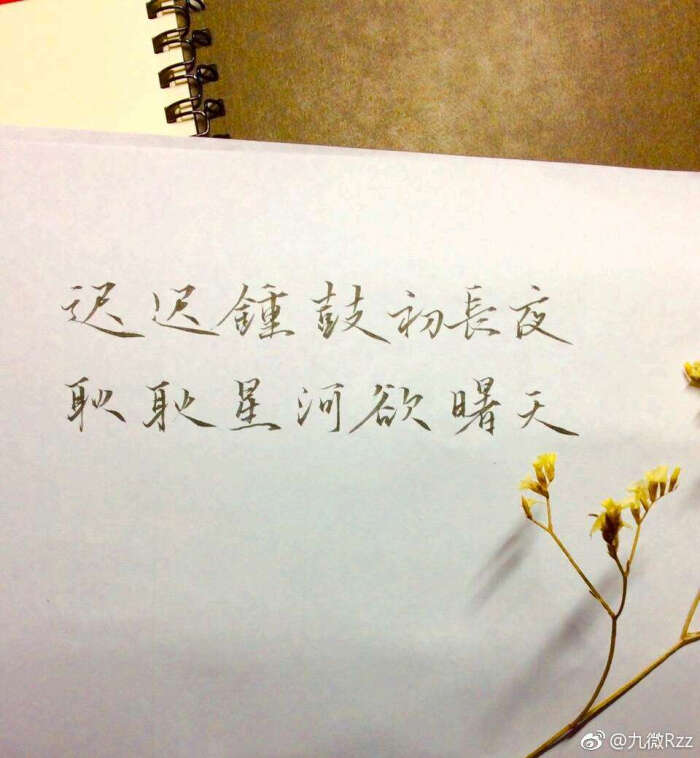 迟迟鍾鼓初長夜
耿耿星河欲曙天
@九微Rzz